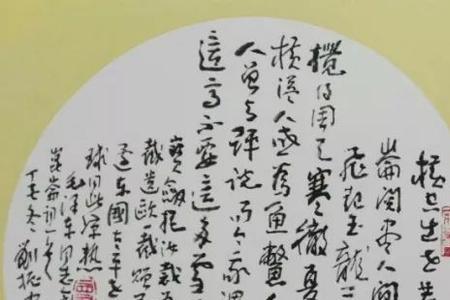 横空出世莽
崙阅尽人间
飞起玉龙三
搅得周天寒彻夏
横溢人或为鱼鳖
人曾与评说而今我谓
这高不要这多雪
宝剑把汝裁为
截遗欧一截赠
还东国太平世
球同此凉热
毛泽东同志
崑崙词一首